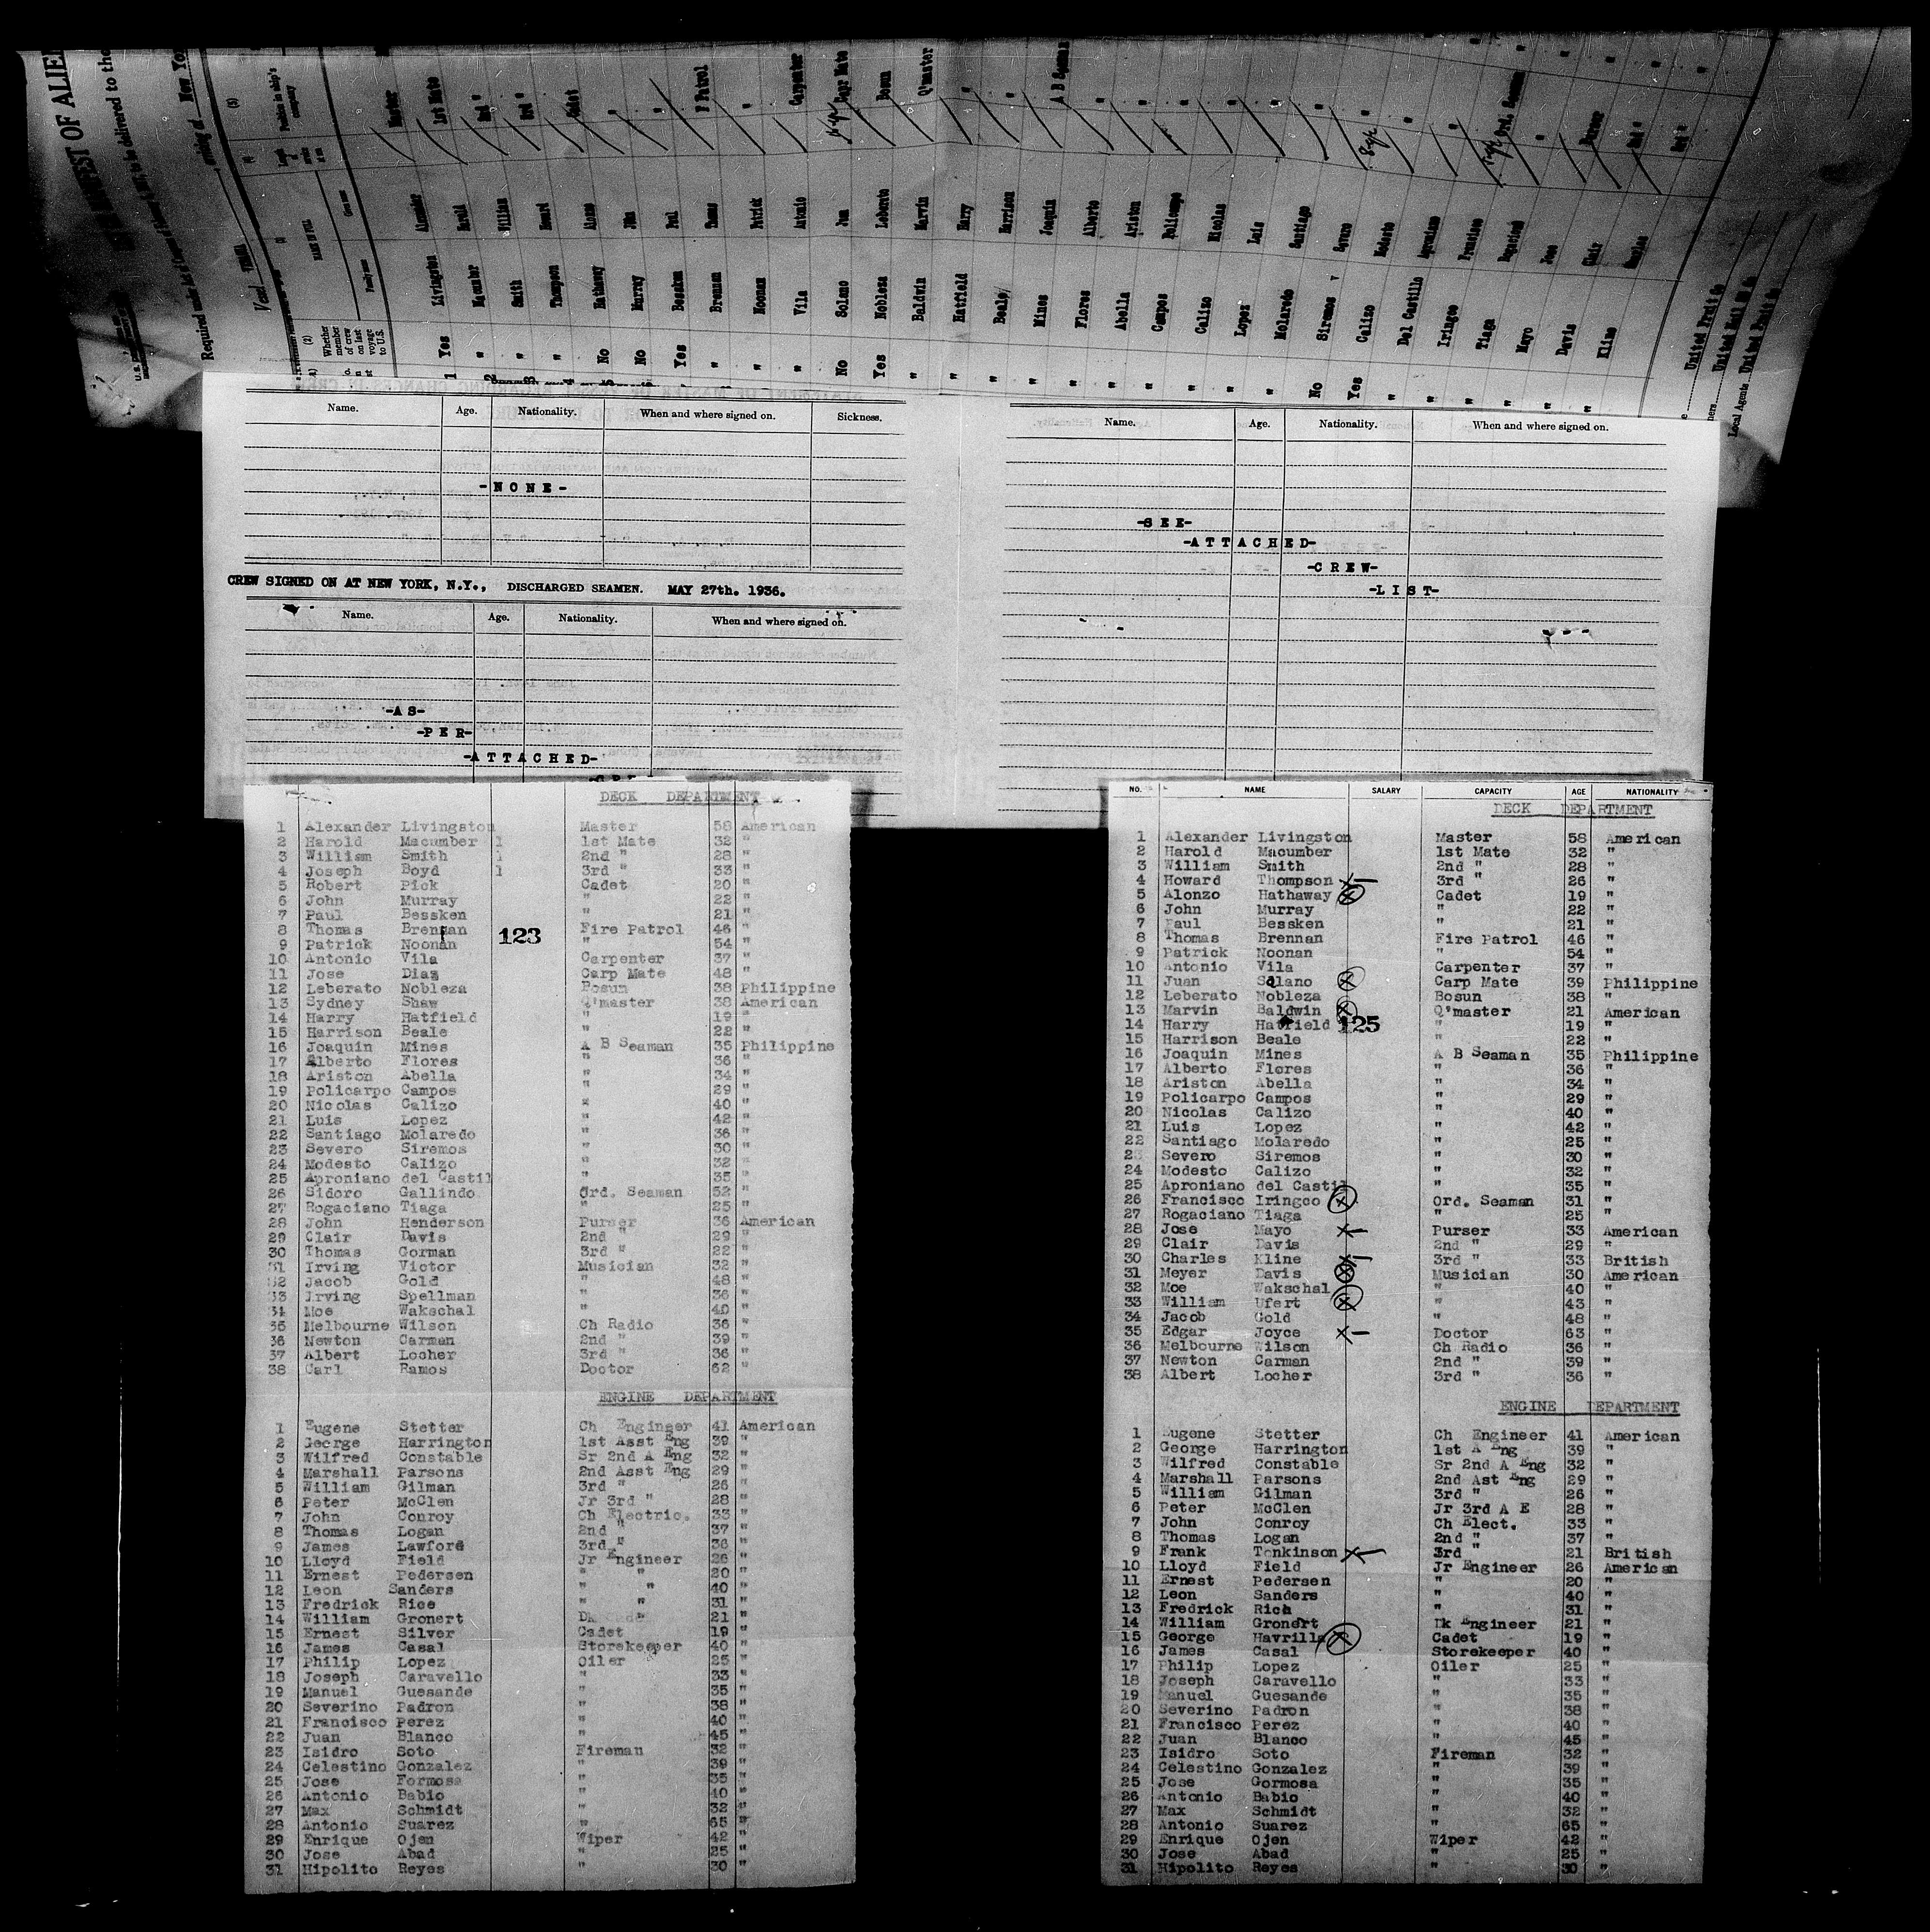 FEST OF ALIE
to be delivered to the
Required under Act of Congress
arriving at New Yo
Vessel
(5)
Position in ship's company
NAME IN FULL
Family name
Given name
(2)
Whether member of crew on last voyage to U.S.
1 Yes Livingston Alexander Master
2 " Macumber Harold 1st Mate
3 " Smith William 2nd "
4 " Thompson Howard 3rd "
5 No Hathaway Alonzo Cadet
No Murray John "
Yes Bessken Paul "
" Brennan Thomas F Patrol
" Noonan Patrick "
" Vila Antonio Carpenter
No Solano Juan Carp Mate
Yes Nobleza Leberato Bosun
" Baldwin Marvin Q'master
" Hatfield Harry "
" Beale Harrison "
" Mines Joaquin A B Seaman
" Flores Alberto "
" Abella Ariston "
" Campos Policarpo "
" Calizo Nicolas "
" Lopez Luis "
" Molaredo Santiago "
No Siremos Severo "
Yes Calizo Modesto "
" Del Castillo Aproniano "
" Iringco Francisco Ord. Seaman
" Tiaga Rogaciano "
" Mayo Jose Purser
" Davis Clair 2nd "
" Kline Charles 3rd "
United Fruit Co
United Mail SS Co
Local Agents United Fruit Co
Name. Age. Nationality. When and where signed on. Sickness.
-NONE-
CREW SIGNED ON AT NEW YORK, N.Y., DISCHARGED SEAMEN. MAY 27th. 1936.
Name. Age. Nationality. When and where signed on.
-AS-
-PER-
-ATTACHED-
Name. Age. Nationality. When and where signed on.
-SEE-
-ATTACHED-
-CREW-
-LIST-
DECK DEPARTMENT
1 Alexander Livingston Master 58 American
2 Harold Macumber 1 1st Mate 32 "
3 William Smith 1 2nd " 28 "
4 Joseph Boyd 1 3rd " 33 "
5 Robert Pick Cadet 20 "
6 John Murray " 22 "
7 Paul Bessken " 21 "
8 Thomas Brennan Fire Patrol 46 "
123
9 Patrick Noonan " 54 "
10 Antonio Vila Carpenter 37 "
11 Jose Diaz Carp Mate 48 "
12 Leberato Nobleza Bosun 38 Philippine
13 Sydney Shaw Q'master 38 American
14 Harry Hatfield " 19 "
15 Harrison Beale " 22 "
16 Joaquin Mines A B Seaman 35 Philippine
17 Alberto Flores " 36 "
18 Ariston Abella " 34 "
19 Policarpo Campos " 29 "
20 Nicolas Calizo " 40 "
21 Luis Lopez " 42 "
22 Santiago Molaredo " 36 "
23 Severo Siremos " 30 "
24 Modesto Calizo " 32 "
25 Aproniano del Castil " 35 "
26 Sidoro Gallindo Ord. Seaman 52 "
27 Rogaciano Tiaga " 25 "
28 John Henderson Purser 36 American
29 Clair Davis 2nd " 29 "
30 Thomas Gorman 3rd " 22 "
31 Irving Victor Musician 32 "
32 Jacob Gold " 48 "
33 Irving Spellman " 36 "
34 Moe Wakschal " 40 "
35 Melbourne Wilson Ch Radio 36 "
36 Newton Carman 2nd " 39 "
37 Albert Locher 3rd " 36 "
38 Carl Ramos Doctor 62 "
ENGINE DEPARTMENT
1 Eugene Stetter Ch Engineer 41 American
2 George Harrington 1st Asst Eng 39 "
3 Wilfred Constable Sr 2nd A Eng 32 "
4 Marshall Parsons 2nd Asst Eng 29 "
5 William Gilman 3rd " 26 "
6 Peter McClen Jr 3rd " 28 "
7 John Conroy Ch Electric. 33 "
8 Thomas Logan 2nd " 37 "
9 James Lawford 3rd " 36 "
10 Lloyd Field Jr Engineer 26 "
11 Ernest Pedersen " " 20 "
12 Leon Sanders " " 40 "
13 Fredrick Rice " " 31 "
14 William Gronert Dk 21 "
15 Ernest Silver Cadet 19 "
16 James Casal Storekeeper 40 "
17 Philip Lopez Oiler 25 "
18 Joseph Caravello " 33 "
19 Manuel Guesande " 35 "
20 Severino Padron " 38 "
21 Francisco Perez " 40 "
22 Juan Blanco " 45 "
23 Isidro Soto Fireman 32 "
24 Celestino Gonzalez " 39 "
25 Jose Formosa " 35 "
26 Antonio Babio " 40 "
27 Max Schmidt " 32 "
28 Antonio Suarez " 65 "
29 Enrique Ojen Wiper 42 "
30 Jose Abad " 25 "
31 Hipolito Reyes " 30 "
NO. NAME SALARY CAPACITY AGE NATIONALITY
DECK DEPARTMENT
1 Alexander Livingston Master 58 American
2 Harold Macumber 1st Mate 32 "
3 William Smith 2nd " 28 "
4 Howard Thompson x1 3rd " 26 "
5 Alonzo Hathaway x Cadet 19 "
6 John Murray " 22 "
7 Paul Bessken " 21 "
8 Thomas Brennan Fire Patrol 46 "
9 Patrick Noonan " 54 "
10 Antonio Vila Carpenter 37 "
11 Juan Solano x Carp Mate 39 Philippine
12 Leberato Nobleza Bosun 38 "
13 Marvin Baldwin x Q'master 21 American
14 Harry Hatfield 125 " 19 "
15 Harrison Beale " 22 "
16 Joaquin Mines A B Seaman 35 Philippine
17 Alberto Flores " 36 "
18 Ariston Abella " 34 "
19 Policarpo Campos " 29 "
20 Nicolas Calizo " 40 "
21 Luis Lopez " 42 "
22 Santiago Molaredo " 25 "
23 Severo Siremos " 30 "
24 Modesto Calizo " 32 "
25 Aproniano del Castil " 35 "
26 Francisco Iringco x Ord. Seaman 31 "
27 Rogaciano Tiaga " 25 "
28 Jose Mayo x1 Purser 33 American
29 Clair Davis 2nd " 29 "
30 Charles Kline x1 3rd " 33 British
31 Meyer Davis x Musician 30 American
32 Moe Wakschal " 40 "
33 William Ufert x " 43 "
34 Jacob Gold " 48 "
35 Edgar Joyce x1 Doctor 63 "
36 Melbourne Wilson Ch Radio 36 "
37 Newton Carman 2nd " 39 "
38 Albert Locher 3rd " 36 "
ENGINE DEPARTMENT
1 Eugene Stetter Ch Engineer 41 American
2 George Harrington 1st A Eng 39 "
3 Wilfred Constable Sr 2nd A Eng 32 "
4 Marshall Parsons 2nd Ast Eng 29 "
5 William Gilman 3rd " 26 "
6 Peter McClen Jr 3rd A E 28 "
7 John Conroy Ch Elect. 33 "
8 Thomas Logan 2nd " 37 "
9 Frank Tonkinson x1 3rd " 21 British
10 Lloyd Field Jr Engineer 26 American
11 Ernest Pedersen " 20 "
12 Leon Sanders " 40 "
13 Fredrick Rich " 31 "
14 William Gronert Dk Engineer 21 "
15 George Havrilla x Cadet 19 "
16 James Casal Storekeeper 40 "
17 Philip Lopez Oiler 25 "
18 Joseph Caravello " 33 "
19 Manuel Guesande " 35 "
20 Severino Padron " 38 "
21 Francisco Perez " 40 "
22 Juan Blanco " 45 "
23 Isidro Soto Fireman 32 "
24 Celestino Gonzalez " 39 "
25 Jose Gormosa " 35 "
26 Antonio Babio " 40 "
27 Max Schmidt " 32 "
28 Antonio Suarez " 65 "
29 Enrique Ojen Wiper 42 "
30 Jose Abad " 25 "
31 Hipolito Reyes " 30 "